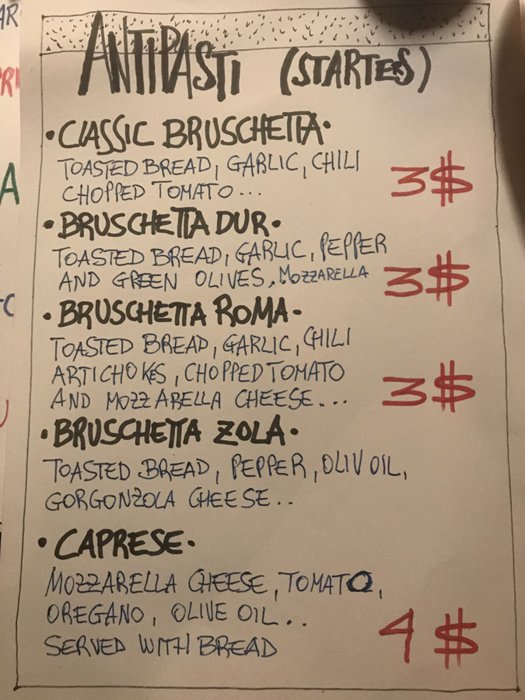 ANTIPASTI (STARTES)
• CLASSIC BRUSCHETTA •
TOASTED BREAD, GARLIC, CHILI
CHOPPED TOMATO... 3$
• BRUSCHETTA DUR •
TOASTED BREAD, GARLIC, PEPPER
AND GREEN OLIVES, MOZZARELLA 3$
• BRUSCHETTA ROMA •
TOASTED BREAD, GARLIC, CHILI
ARTICHOKES, CHOPPED TOMATO
AND MOZZARELLA CHEESE... 3$
• BRUSCHETTA ZOLA •
TOASTED BREAD, PEPPER, OLIV OIL,
GORGONZOLA CHEESE..
• CAPRESE •
MOZZARELLA CHEESE, TOMATO,
OREGANO, OLIVE OIL..
SERVED WITH BREAD 4$